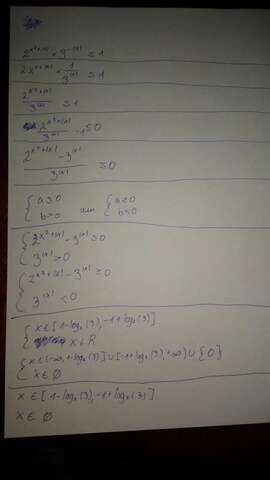 2^{x²+|x|} · 3^{-|x|} ≤ 1
2^{x²+|x|} · 1/3^{|x|} ≤ 1
2^{x²+|x|}/3^{|x|} ≤ 1
2^{x²+|x|}/3^{|x|} - 1 ≤ 0
(2^{x²+|x|} - 3^{|x|})/3^{|x|} ≤ 0
{ a≤0 или { a≥0
{ b>0 { b<0
{ 2^{x²+|x|} - 3^{|x|} ≤ 0
{ 3^{|x|} > 0
{ 2^{x²+|x|} - 3^{|x|} ≥ 0
{ 3^{|x|} < 0
{ x∈[1-log₂(3),-1+log₂(3)]
{ x∈R
{ x∈(-∞,1-log₂(3)]∪[-1+log₂(3),+∞)∪{0}
{ x∈∅
x∈[1-log₂(3),-1+log₂(3)]
x∈∅